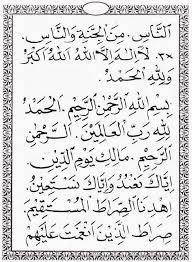 اَلنَّاسِ. مِنَ الْجِنَّةِ وَالنَّاسِ.
٣x. لَا اِلٰهَ اِلَّا اللهُ اَللهُ اَكْبَرُ
وَلِلّٰهِ الْحَمْدُ.
بِسْمِ اللهِ الرَّحْمٰنِ الرَّحِيْمِ. اَلْحَمْدُ
لِلّٰهِ رَبِّ الْعَالَمِيْنَ. اَلرَّحْمٰنِ
الرَّحِيْمِ. مَالِكِ يَوْمِ الدِّيْنِ.
اِيَّاكَ نَعْبُدُ وَاِيَّاكَ نَسْتَعِيْنُ.
اِهْدِنَا الصِّرَاطَ الْمُسْتَقِيْمَ.
صِرَاطَ الَّذِيْنَ اَنْعَمْتَ عَلَيْهِمْ